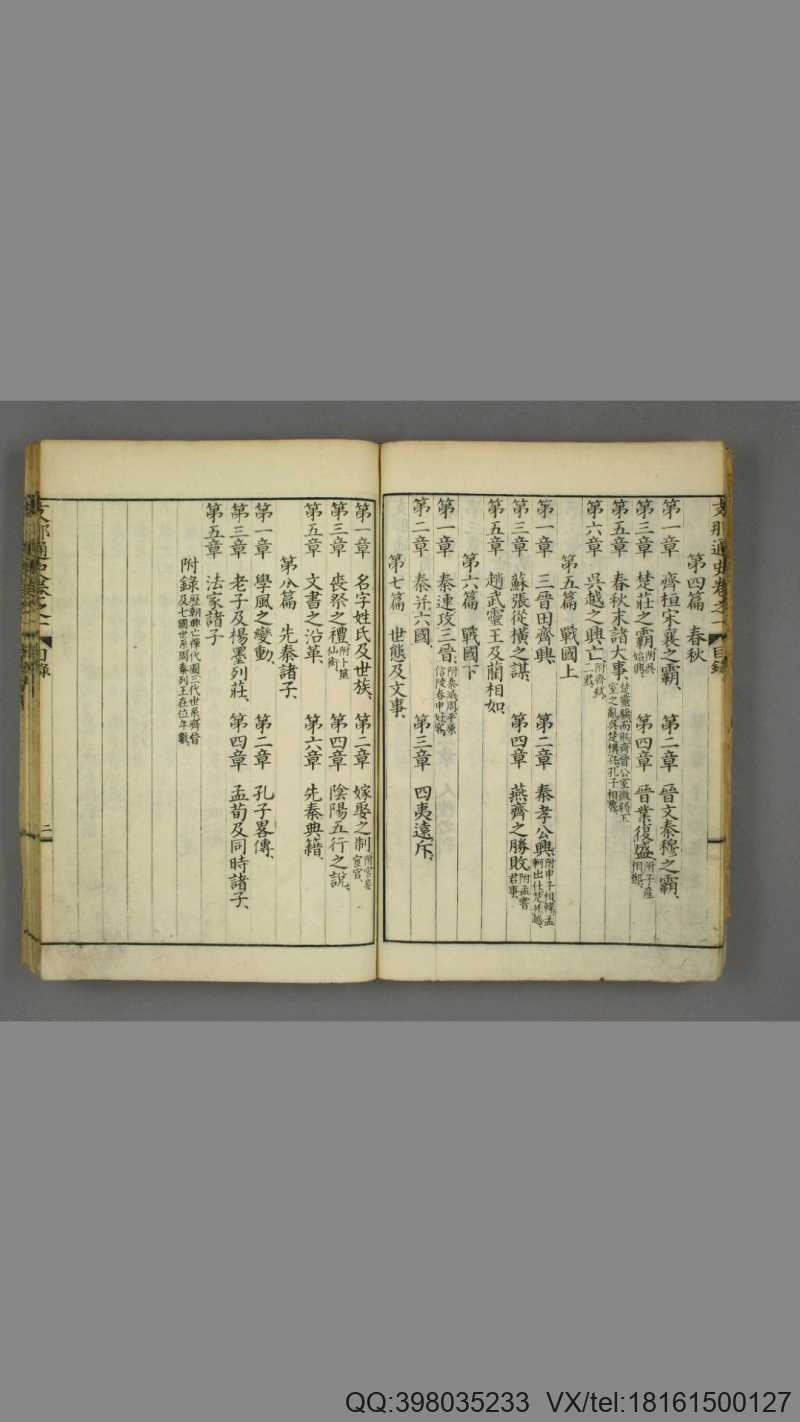 支那通史卷之一 目錄
第四篇 春秋
第一章 齊桓宋襄之霸、 第二章 晉文秦穆之霸、
第三章 楚莊之霸、附吳始興、 第四章 晉業復盛、附子產相鄭、
第五章 春秋末諸大事、
第六章 吳越之興亡、附齊弑二君、
第五篇 戰國上
第一章 三晉田齊興、 第二章 秦孝公興、附申子相韓、孟軻出仕、楚幷越、
第三章 蘇張從橫之謀、 第四章 燕齊之勝敗、附孟嘗君事、
第五章 趙武靈王及藺相如、
第六篇 戰國下
第一章 秦連攻三晉、附秦滅周、平原信陵春申
第二章 秦幷六國、 第三章 四夷遠斥、
第七篇 世態及文事、
第一章 名字姓氏及世族、 第二章 嫁娶之制、附宮妾宦官、
第三章 喪祭之禮、附卜筮仙術、 第四章 陰陽五行之說、
第五章 文書之沿革、 第六章 先秦典籍、
第八篇 先秦諸子、
第一章 學風之變動、 第二章 孔子畧傳、
第三章 老子及楊墨列莊、 第四章 孟荀及同時諸子、
第五章 法家諸子
附錄歷朝興亡禪代圖三代世系齊晉及七國世系周秦列王在位年數
二
QQ:398035233 VX/tel:18161500127